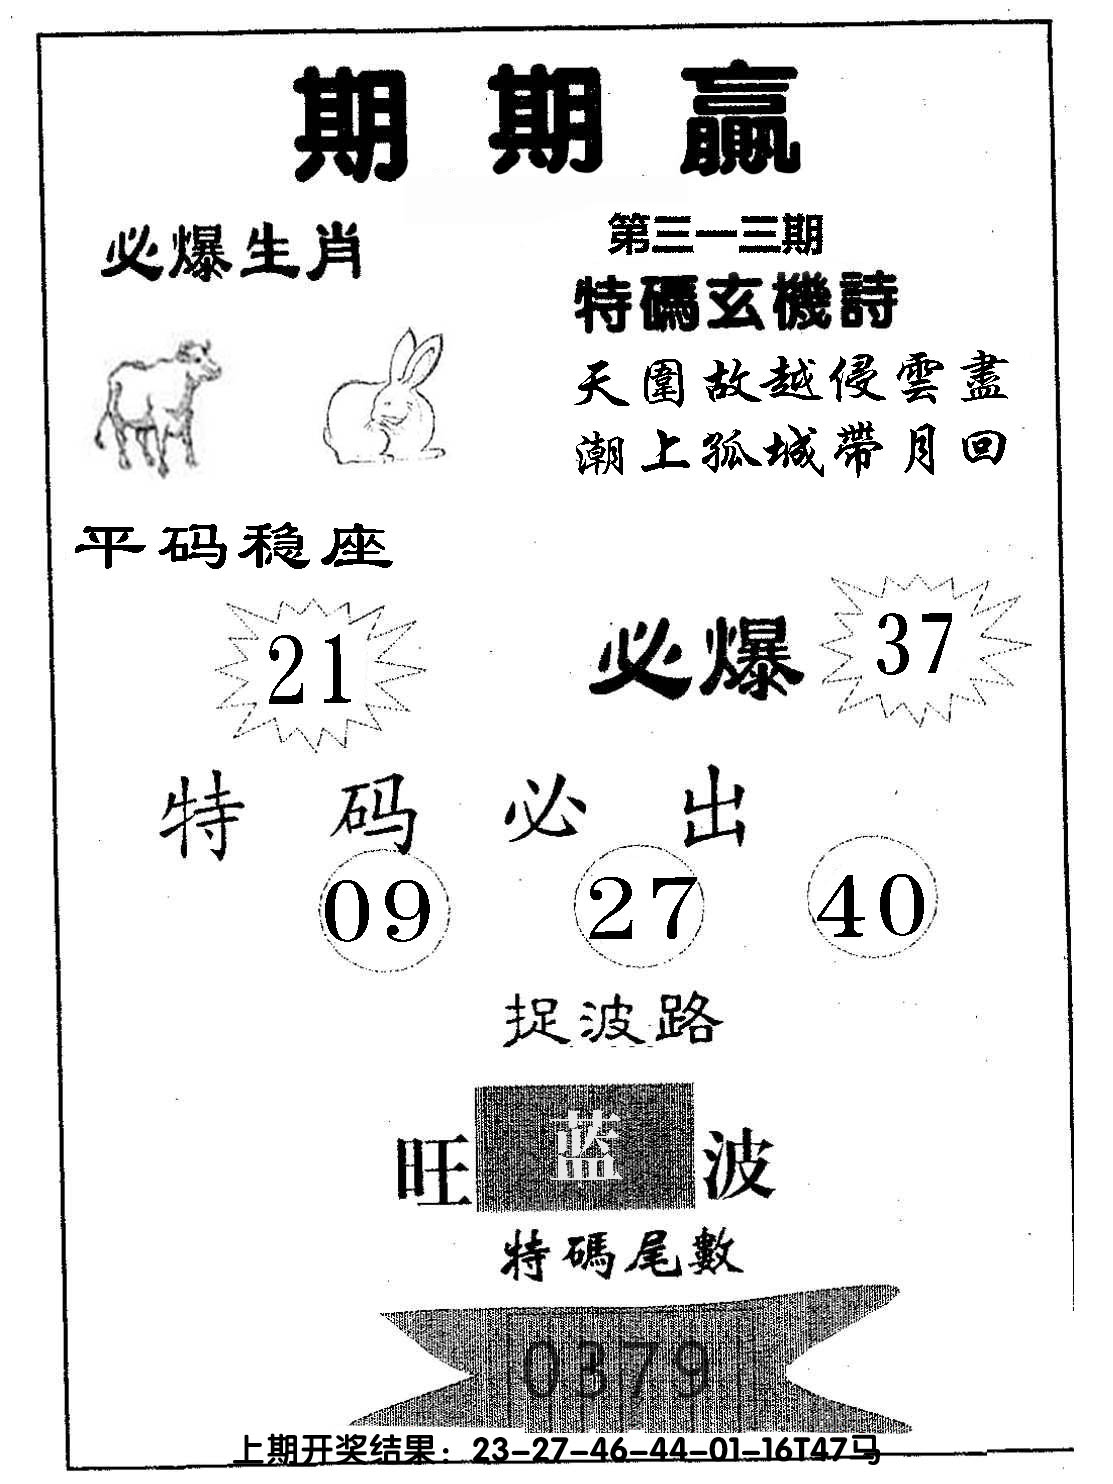 期期赢
必爆生肖
第三一三期
特碼玄機詩
天圍故越侵雲盡
潮上孤城帶月回
平码稳座
21
必爆 37
特码必出
09 27 40
捉波路
旺 蓝 波
特碼尾數
0379
上期开奖结果：23-27-46-44-01-16T47马